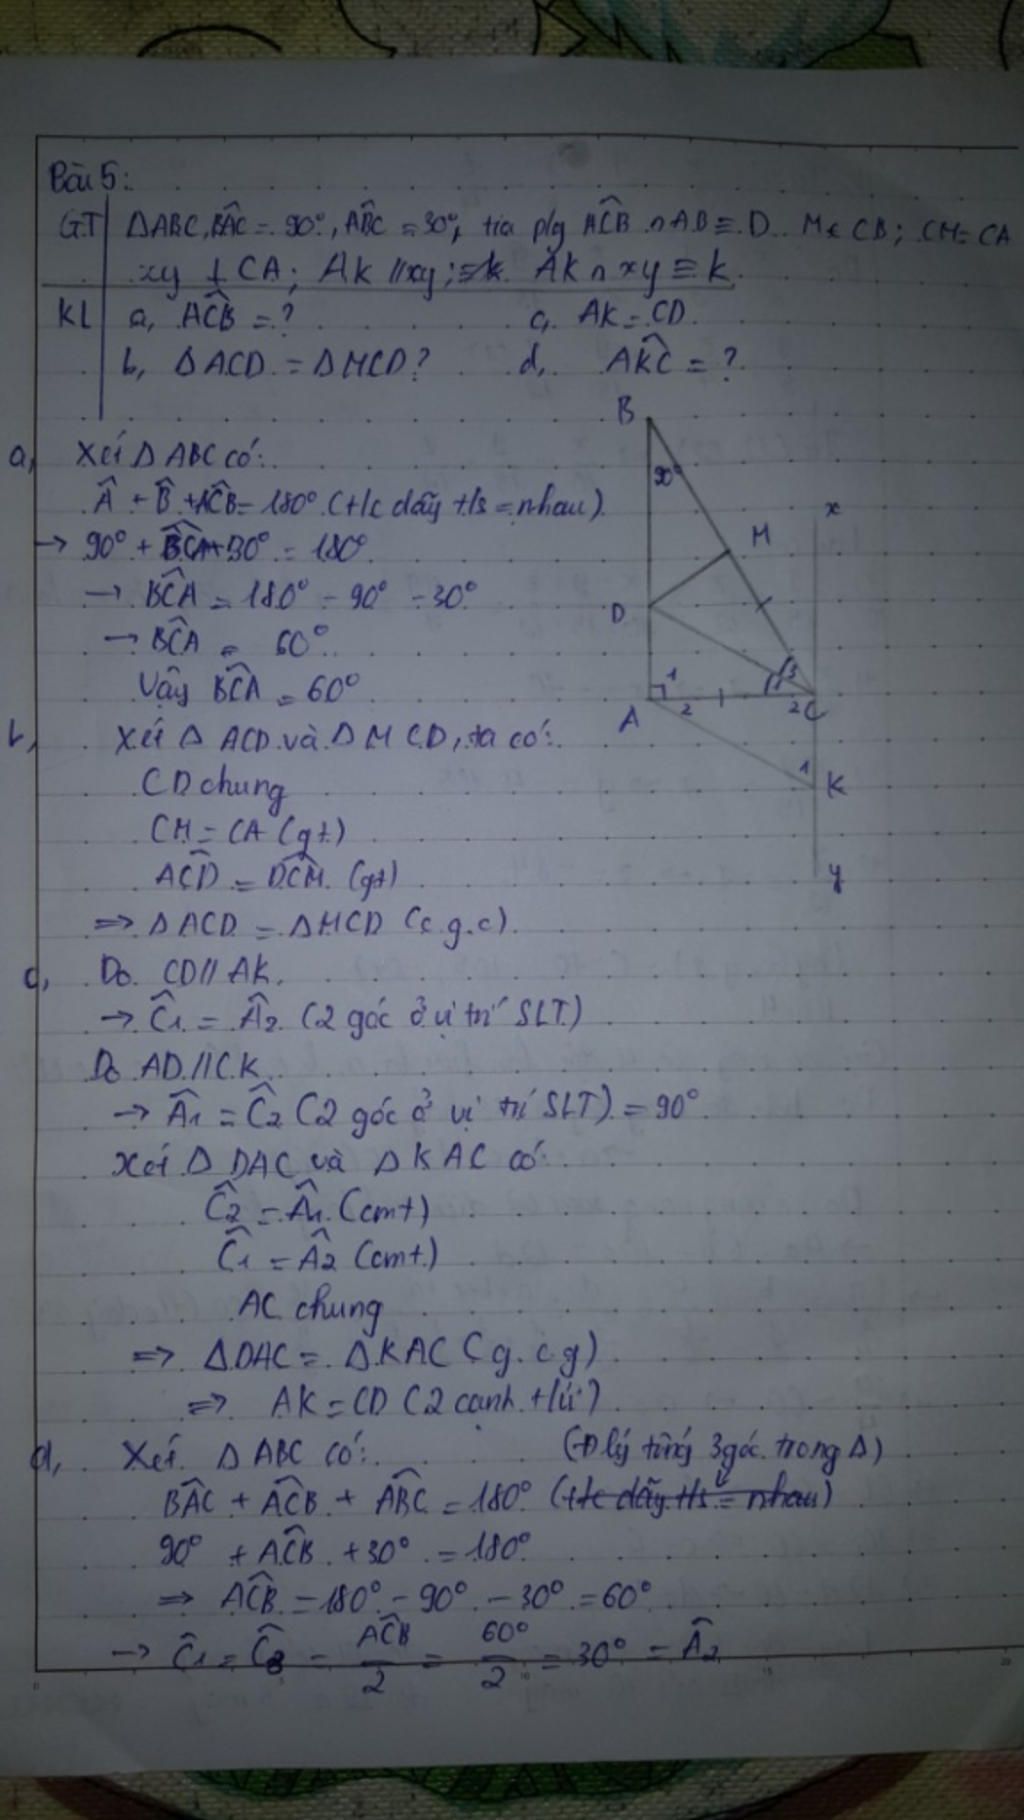 Bài 5:
GT ΔABC, BÂC = 90°, AB̂C = 30°, tia p/g AĈB ∩ AB ≡ D. M ∈ CB; CM = CA
xy ⊥ CA; AK // xy; AK ∩ xy ≡ K.
KL a, AĈB = ? c, AK = CD
b, ΔACD = ΔMCD? d, AK̂C = ?
B
a, Xét Δ ABC có:
30°
Â + B̂ + AĈB = 180° (t/c dãy t/s = nhau)
x
M
→ 90° + BĈA + 30° = 180°
→ BĈA = 180° - 90° - 30°
D
→ BĈA = 60°
Vậy BĈA = 60°
1 3
A 2 2 C
b, Xét Δ ACD và Δ MCD, ta có:
1 K
CD chung
CM = CA (gt)
y
AĈD = DĈM (gt)
⇒ Δ ACD = Δ MCD (c.g.c)
c, Do CD // AK
→ Ĉ1 = Â2 (2 góc ở vị trí SLT)
Do AD // CK
→ Â1 = Ĉ2 (2 góc ở vị trí SLT) = 90°
Xét Δ DAC và Δ KAC có:
Ĉ2 = Â1 (cmt)
Ĉ1 = Â2 (cmt)
AC chung
⇒ ΔDAC = ΔKAC (g.c.g)
⇒ AK = CD (2 cạnh t/ứ)
d, Xét Δ ABC có: (Đ lý tổng 3 góc trong Δ)
BÂC + AĈB + AB̂C = 180° (t/c dãy t/s = nhau)
90° + AĈB + 30° = 180°
⇒ AĈB = 180° - 90° - 30° = 60°
→ Ĉ1 = Ĉ3 = AĈB/2 = 60°/2 = 30° = Â2